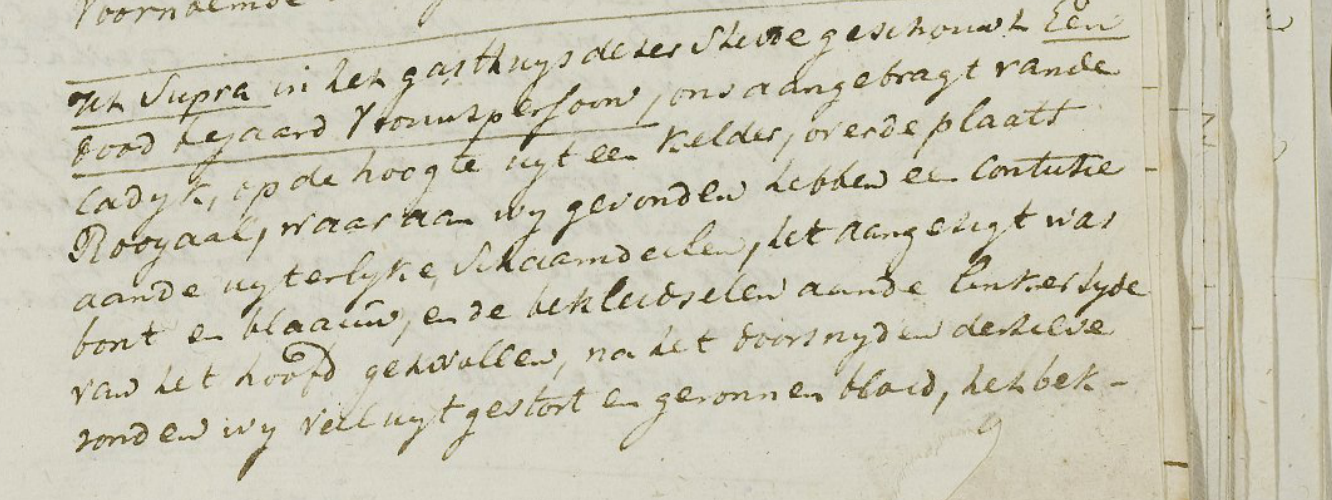 Voornoemde
Ut Supra in het gasthuys deser Stede geschouwt Een
dood bejaard Vrouwspersoon, ons aangebragt vande
Cadyk, op de hoogte uyt een Kelder, over de plaats
Rooyaal, waar aan wy gevonden hebben een Contusie
aande uyterlyke Schaamdeelen, het aangesigt was
bont en blaauw, en de bekleedselen aande linker syde
van het hoofd geswollen, na het doorsnyden derselve
vonden wy veel uytgestort en geronnen bloed, het bek-